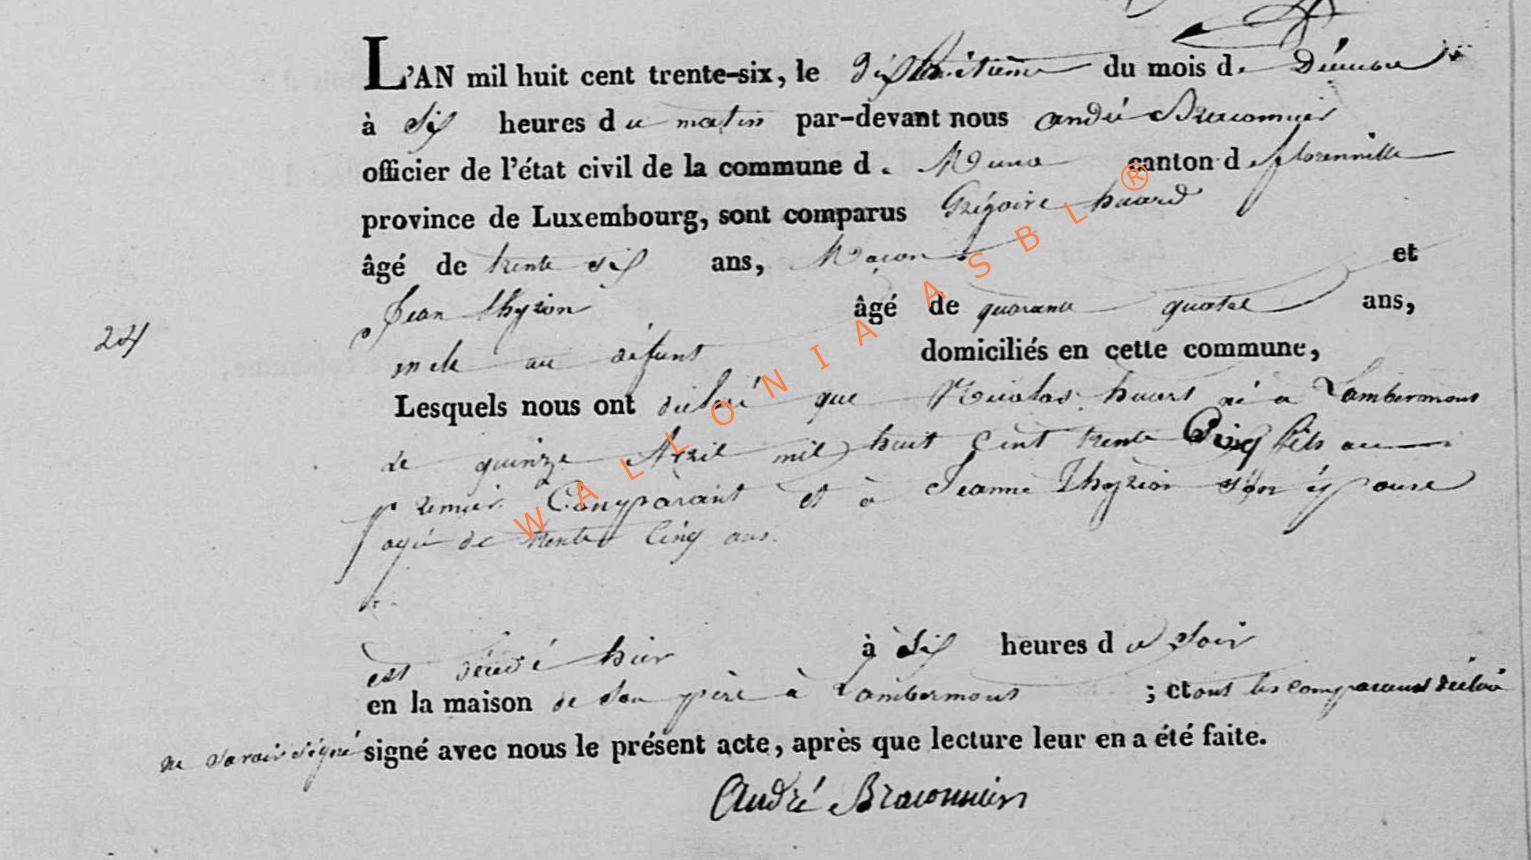 L'AN mil huit cent trente-six, le dixhuitieme du mois de Décembre
à Six heures du matin par-devant nous andré Braconnier
officier de l'état civil de la commune d. Muno canton d florenville
province de Luxembourg, sont comparus Grégoire huard
âgé de trente six ans, Maçon et
Jean thyrion âgé de quarante quatre ans,
24
oncle au défunt domiciliés en cette commune,
Lesquels nous ont déclaré que Nicolas huart né a Lambermont
le quinze Avril mil huit Cent trente Cinq fils au
premier Comparant et à Jeanne Thyrion son épouse
agée de trente Cinq ans.
est décédé hier à Six heures du Soir
en la maison de Son père à Lambermont ; et ont les comparants déclaré
ne savoir signé signé avec nous le présent acte, après que lecture leur en a été faite.
André Braconnier
WALLONIA ASBL ®